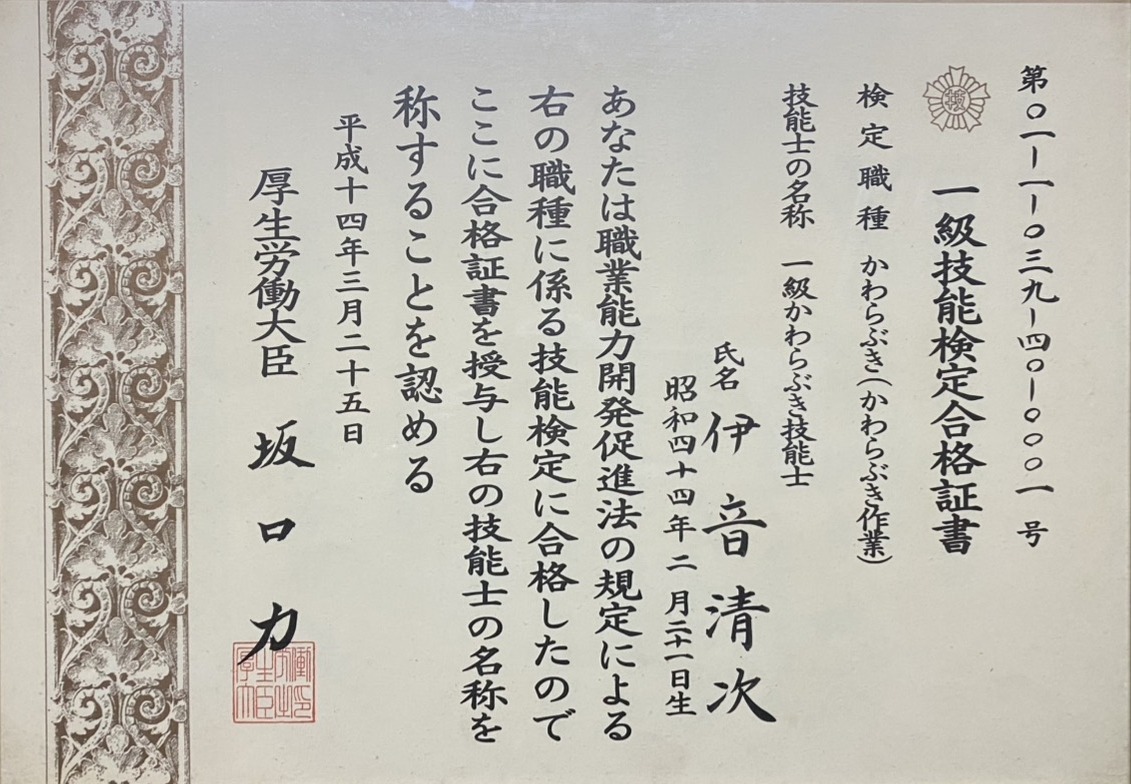 第〇一-一-一〇三九-四〇-〇〇〇一号
技
一級技能検定合格証書
検定職種 かわらぶき(かわらぶき作業)
技能士の名称 一級かわらぶき技能士
氏名 伊音清次
昭和四十四年二月二十一日生
あなたは職業能力開発促進法の規定による
右の職種に係る技能検定に合格したので
ここに合格証書を授与し右の技能士の名称を
称することを認める
平成十四年三月二十五日
厚生労働大臣 坂口力